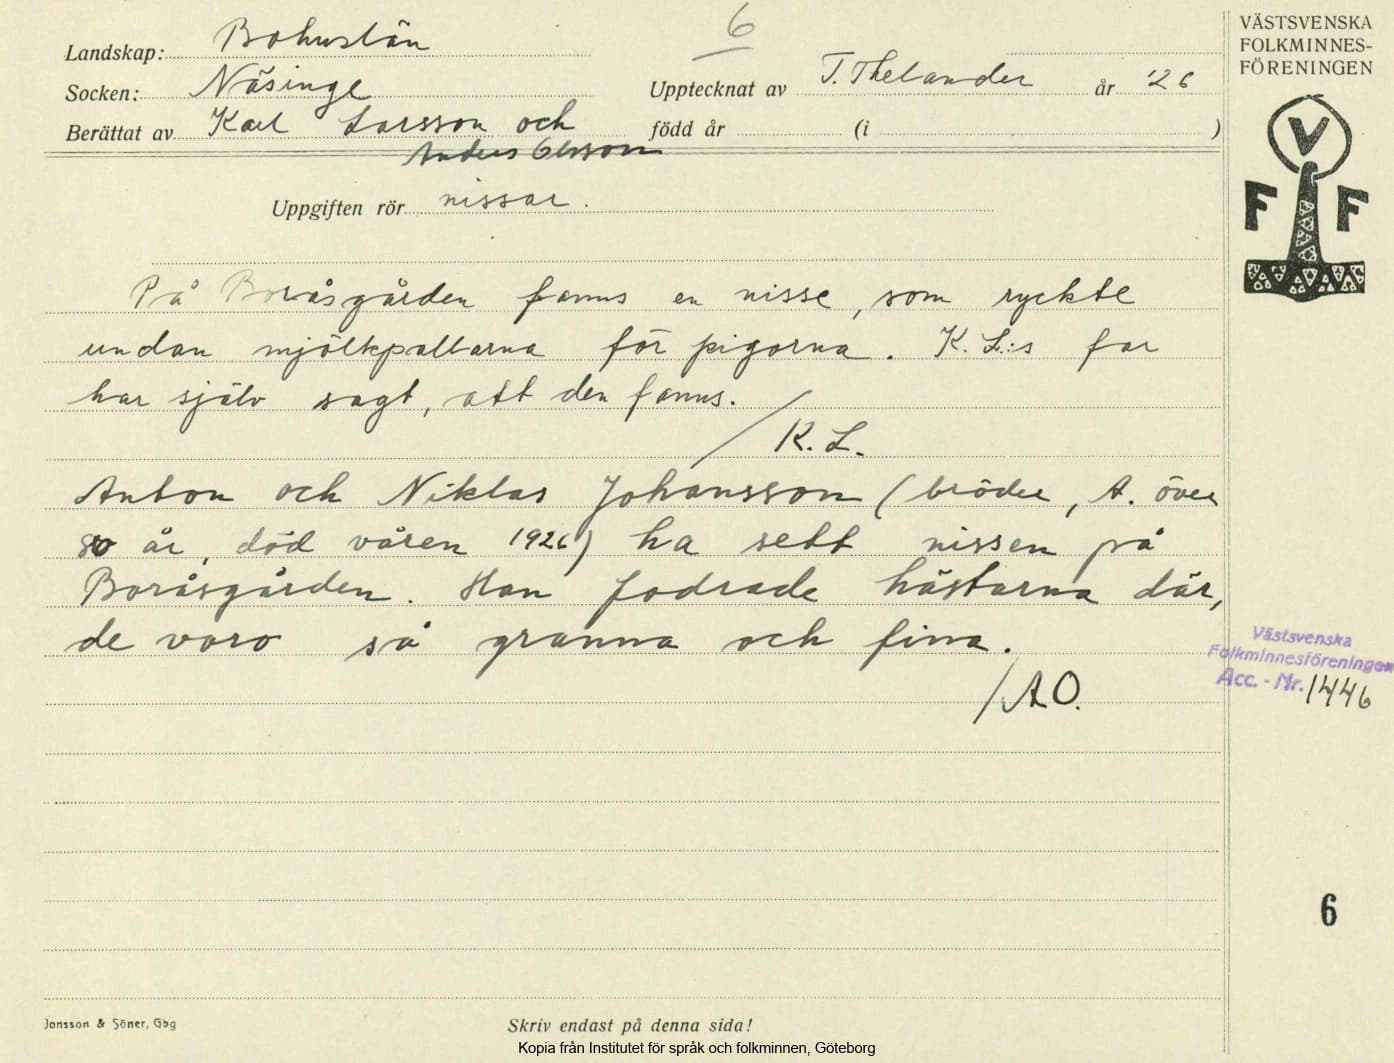 6
Landskap: Bohuslän
Socken: Näsinge
Upptecknat av T. Thelander år '26
Berättat av Karl Larsson och
född år (i )
Anders Olsson
Uppgiften rör nissar.
VÄSTSVENSKA
FOLKMINNES-
FÖRENINGEN
V
F F
På Boråsgården fanns en nisse, som ryckte
undan mjölkpallarna för pigorna. K. L.:s far
har själv sagt, att den fanns.
/K. L.
Anton och Niklas Johansson (bröder, A. över
80 år, död våren 1926) ha sett nissen på
Boråsgården. Han fodrade hästarna där,
de voro så granna och fina.
/A O.
Västsvenska
Folkminnesföreningen
Acc. - Nr. 1446
6
Jonsson & Söner, Gbg
Skriv endast på denna sida!
Kopia från Institutet för språk och folkminnen, Göteborg